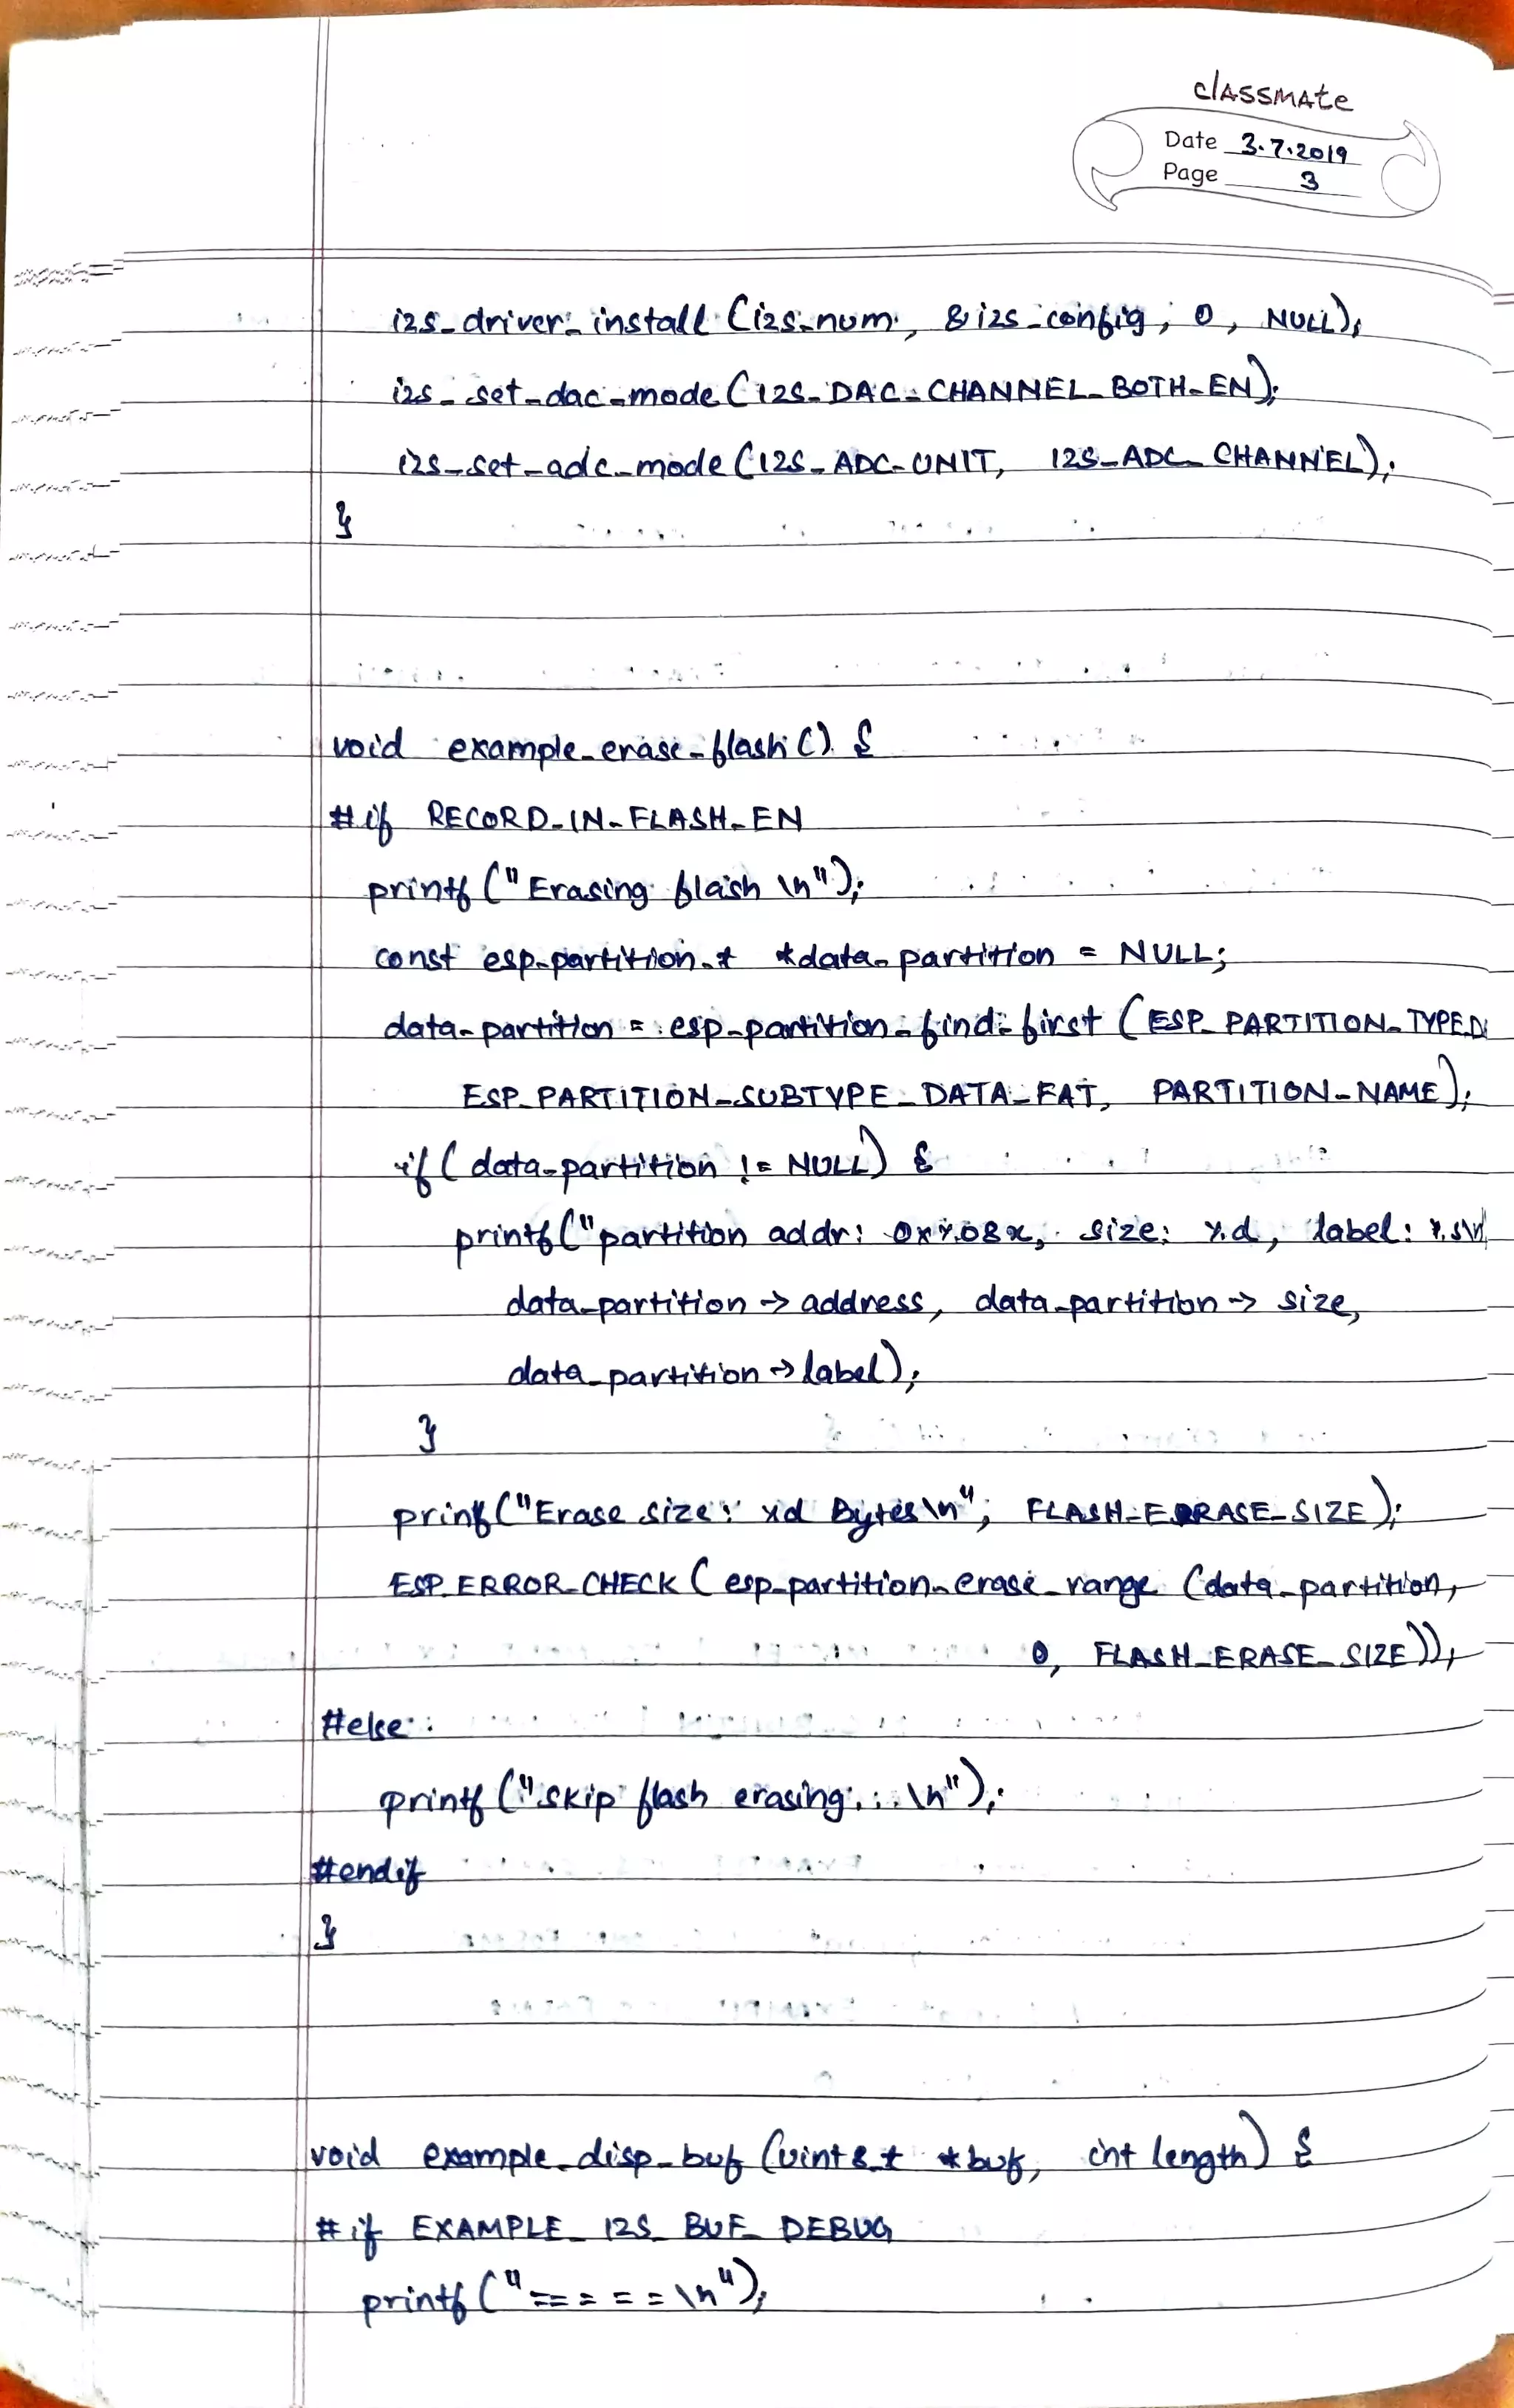 classmate
Date 3.7.2019
Page 3
i2s_driver_install (i2s_num, &i2s_config, 0, NULL);
i2s_set_dac_mode (I2S_DAC_CHANNEL_BOTH_EN);
i2s_set_adc_mode (I2S_ADC_UNIT, I2S_ADC_CHANNEL);
}
void example_erase_flash () {
#if RECORD_IN_FLASH_EN
printf ("Erasing flash \n");
const esp_partition_t *data_partition = NULL;
data_partition = esp_partition_find_first (ESP_PARTITION_TYPE_D
ESP_PARTITION_SUBTYPE_DATA_FAT, PARTITION_NAME);
if (data_partition != NULL) {
printf ("partition addr: 0x%08x, size: %d, label: %s\n
data_partition -> address, data_partition -> size,
data_partition -> label);
}
prinf ("Erase size: %d Bytes\n", FLASH_ERASE_SIZE);
ESP_ERROR_CHECK (esp_partition_erase_range (data_partition,
0, FLASH_ERASE_SIZE));
#else
printf ("Skip flash erasing...\n");
#endif
}
void example_disp_buf (uint8_t *buf, int length) {
#if EXAMPLE_I2S_BUF_DEBUG
printf ("=====\n");